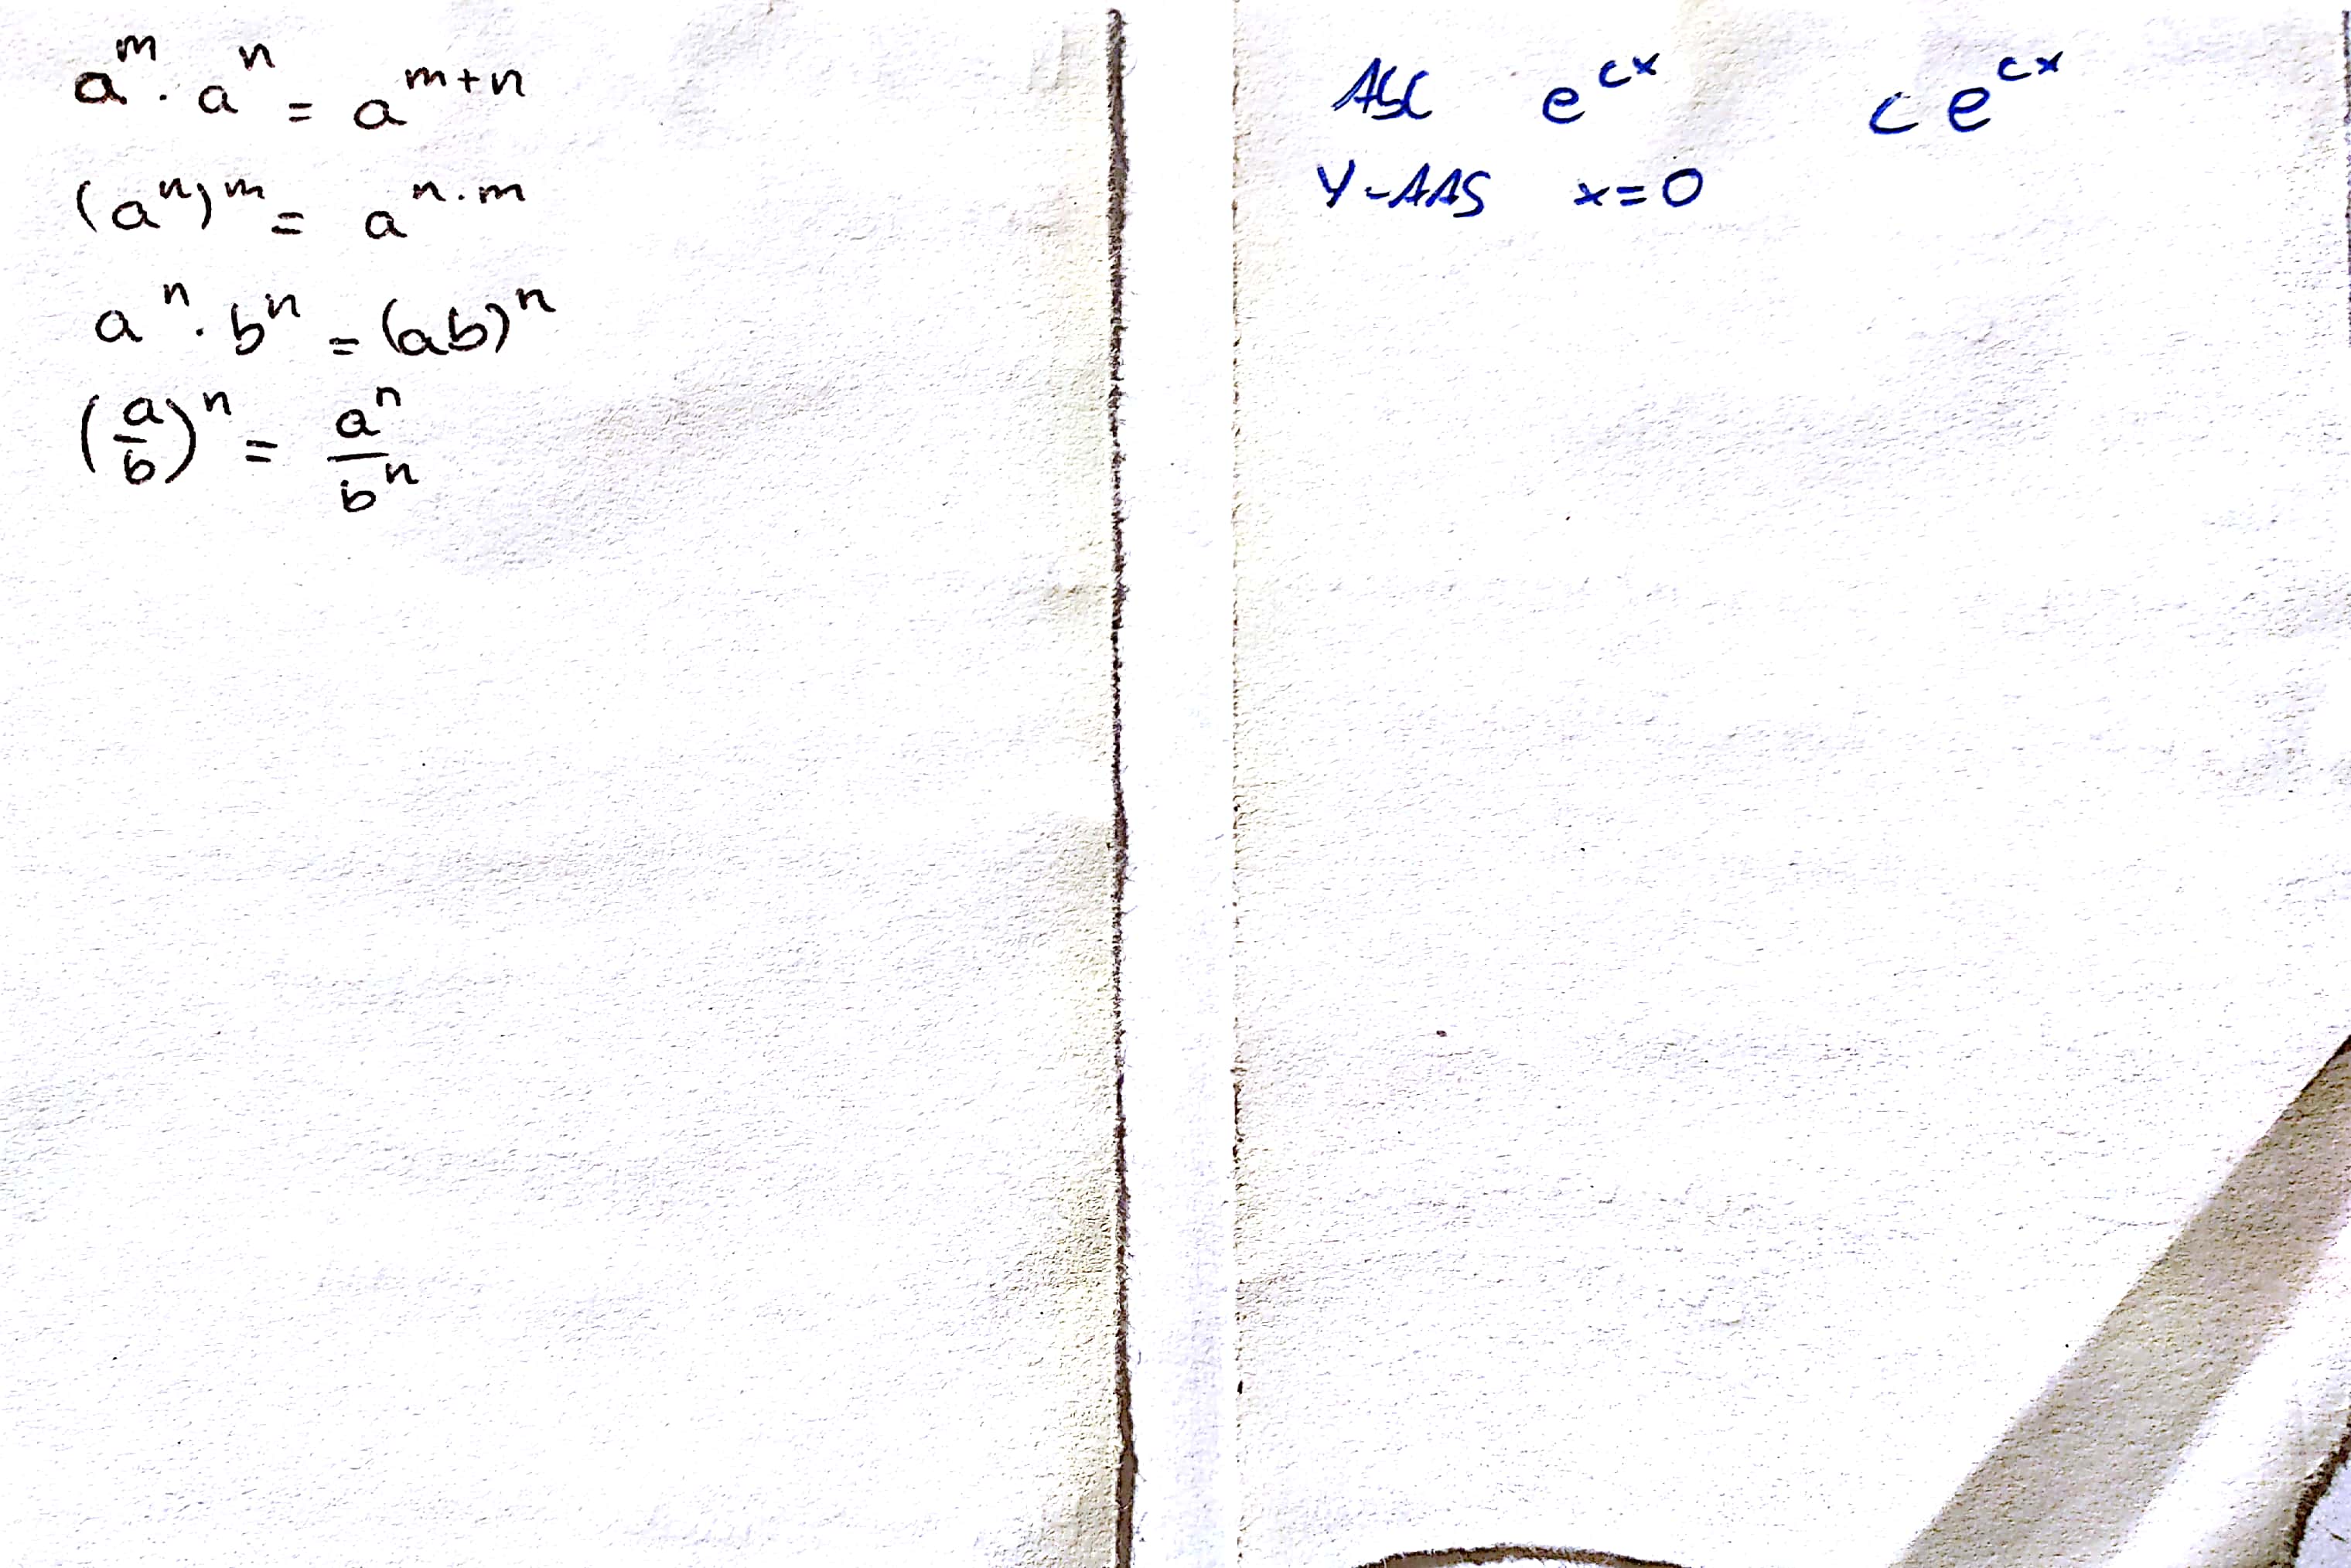 a^m · a^n = a^{m+n}
(a^n)^m = a^{n·m}
a^n · b^n = (ab)^n
(a/b)^n = a^n/b^n
e^{cx} c e^{cx}
Y-AAS x=0